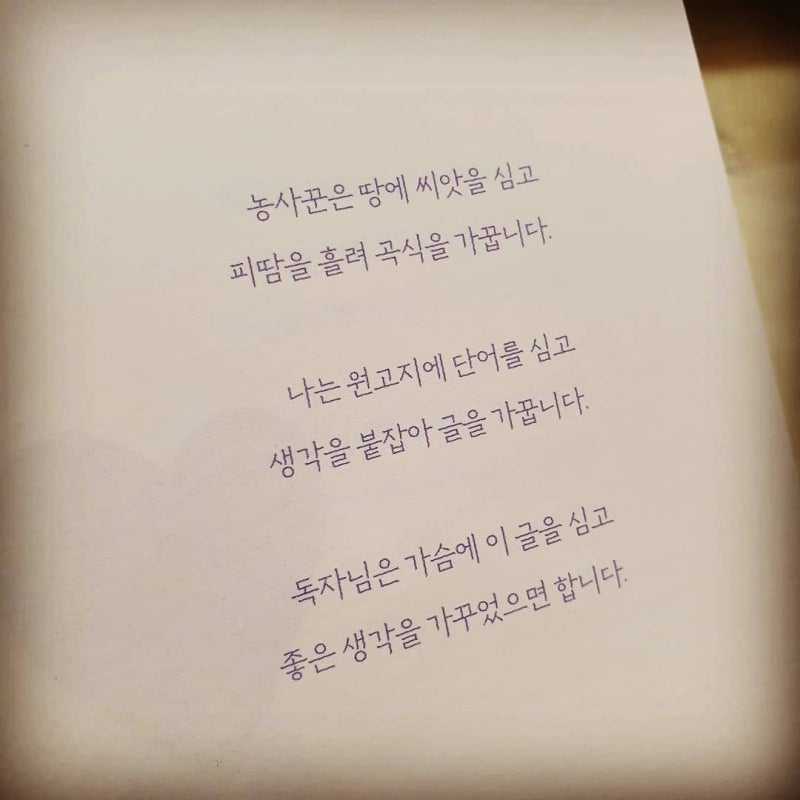 농사꾼은 땅에 씨앗을 심고
피땀을 흘려 곡식을 가꿉니다.
나는 원고지에 단어를 심고
생각을 붙잡아 글을 가꿉니다.
독자님은 가슴에 이 글을 심고
좋은 생각을 가꾸었으면 합니다.